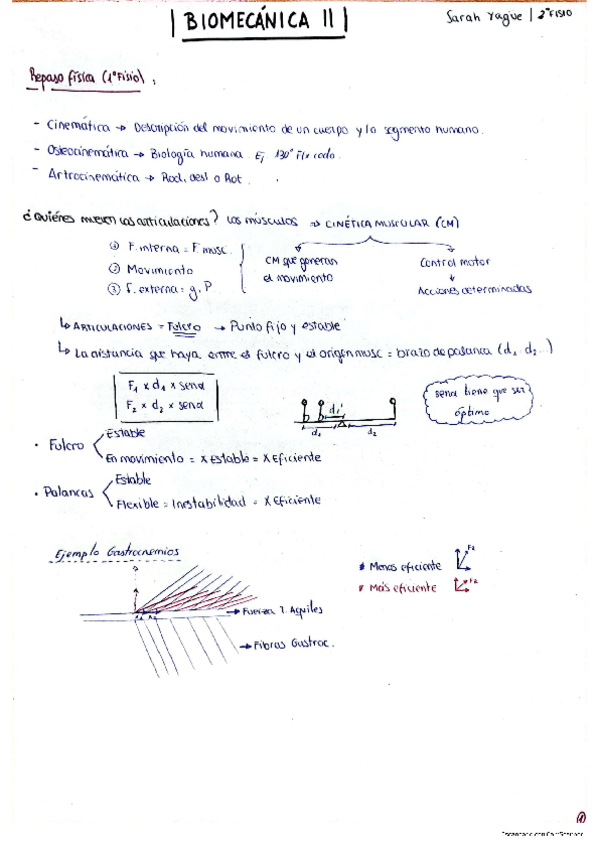 BIOMECÁNICA II
Sarah Yagüe | 2º FISIO
Repaso física (1º Fisio):
- Cinemática → Descripción del movimiento de un cuerpo y/o segmento humano.
- Osteocinemática → Biología humana. Ej 130° Flx codo.
- Artrocinemática → Rod, desl o Rot.
¿Quiénes mueven las articulaciones? Los músculos ⇒ CINÉTICA MUSCULAR (CM)
① F. interna = F. musc.
② Movimiento
③ F. externa = g, P
CM que generan el movimiento
Control motor
↓
Acciones determinadas
↳ ARTICULACIONES = Fulcro → Punto fijo y estable
↳ La distancia que haya entre el fulcro y el origen musc = brazo de palanca (d₁, d₂...)
F₁ x d₁ x senα
F₂ x d₂ x senα
d₁'
d₁
d₂
senα tiene que ser óptimo
• Fulcro
Estable
En movimiento = X Estable = X Eficiente
• Palancas
Estable
Flexible = Inestabilidad = X Eficiente
Ejemplo Gastrocnemios
Menos eficiente
F₂
Más eficiente
F₂
→ Fuerza T. Aquiles
→ Fibras Gastroc.
①
Escaneado con CamScanner